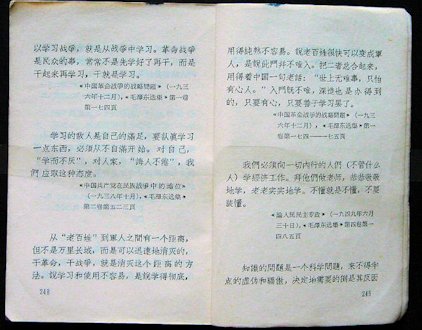 以学习战爭，就是从战爭中学习。革命战爭
是民众的事，常常不是先学好了再干，而是
干起来再学习，干就是学习。
*中国革命战爭的战略問題*（一九三
六年十二月），*毛澤东选集*第一卷
第一七四頁
学习的敌人是自己的滿足，要认真学习
一点东西，必须从不自滿开始。对自己，
“学而不厌”，对人家，“誨人不倦”，我
們应取这种态度。
*中国共产党在民族战爭中的地位*
（一九三八年十月），*毛澤东选集*
第二卷第五二三頁
从“老百姓”到軍人之間有一个距离，
但不是万里长城，而是可以迅速地消灭的，
干革命，干战爭，就是消灭这个距离的方
法。說学习和使用不容易，是說学得彻底，
248
用得純熟不容易。說老百姓很快可以变成軍
人，是說此門并不难入。把二者总合起来，
用得着中国一句老話：“世上无难事，只怕
有心人。”入門既不难，深造也是办得到
的，只要有心，只要善于学习罢了。
*中国革命战爭的战略問題*（一九三
六年十二月），*毛澤东选集*第一卷
第一七四——一七五頁
我們必須向一切內行的人們（不管什么
人）学經济工作。拜他們做老师，恭恭敬敬
地学，老老实实地学。不懂就是不懂，不要
装懂。
*論人民民主专政*（一九四九年六月
三十日），*毛澤东选集*第四卷第一
四八五頁
知識的問題是一个科学問題，来不得半
点的虛伪和驕傲，决定地需要的倒是其反面
249